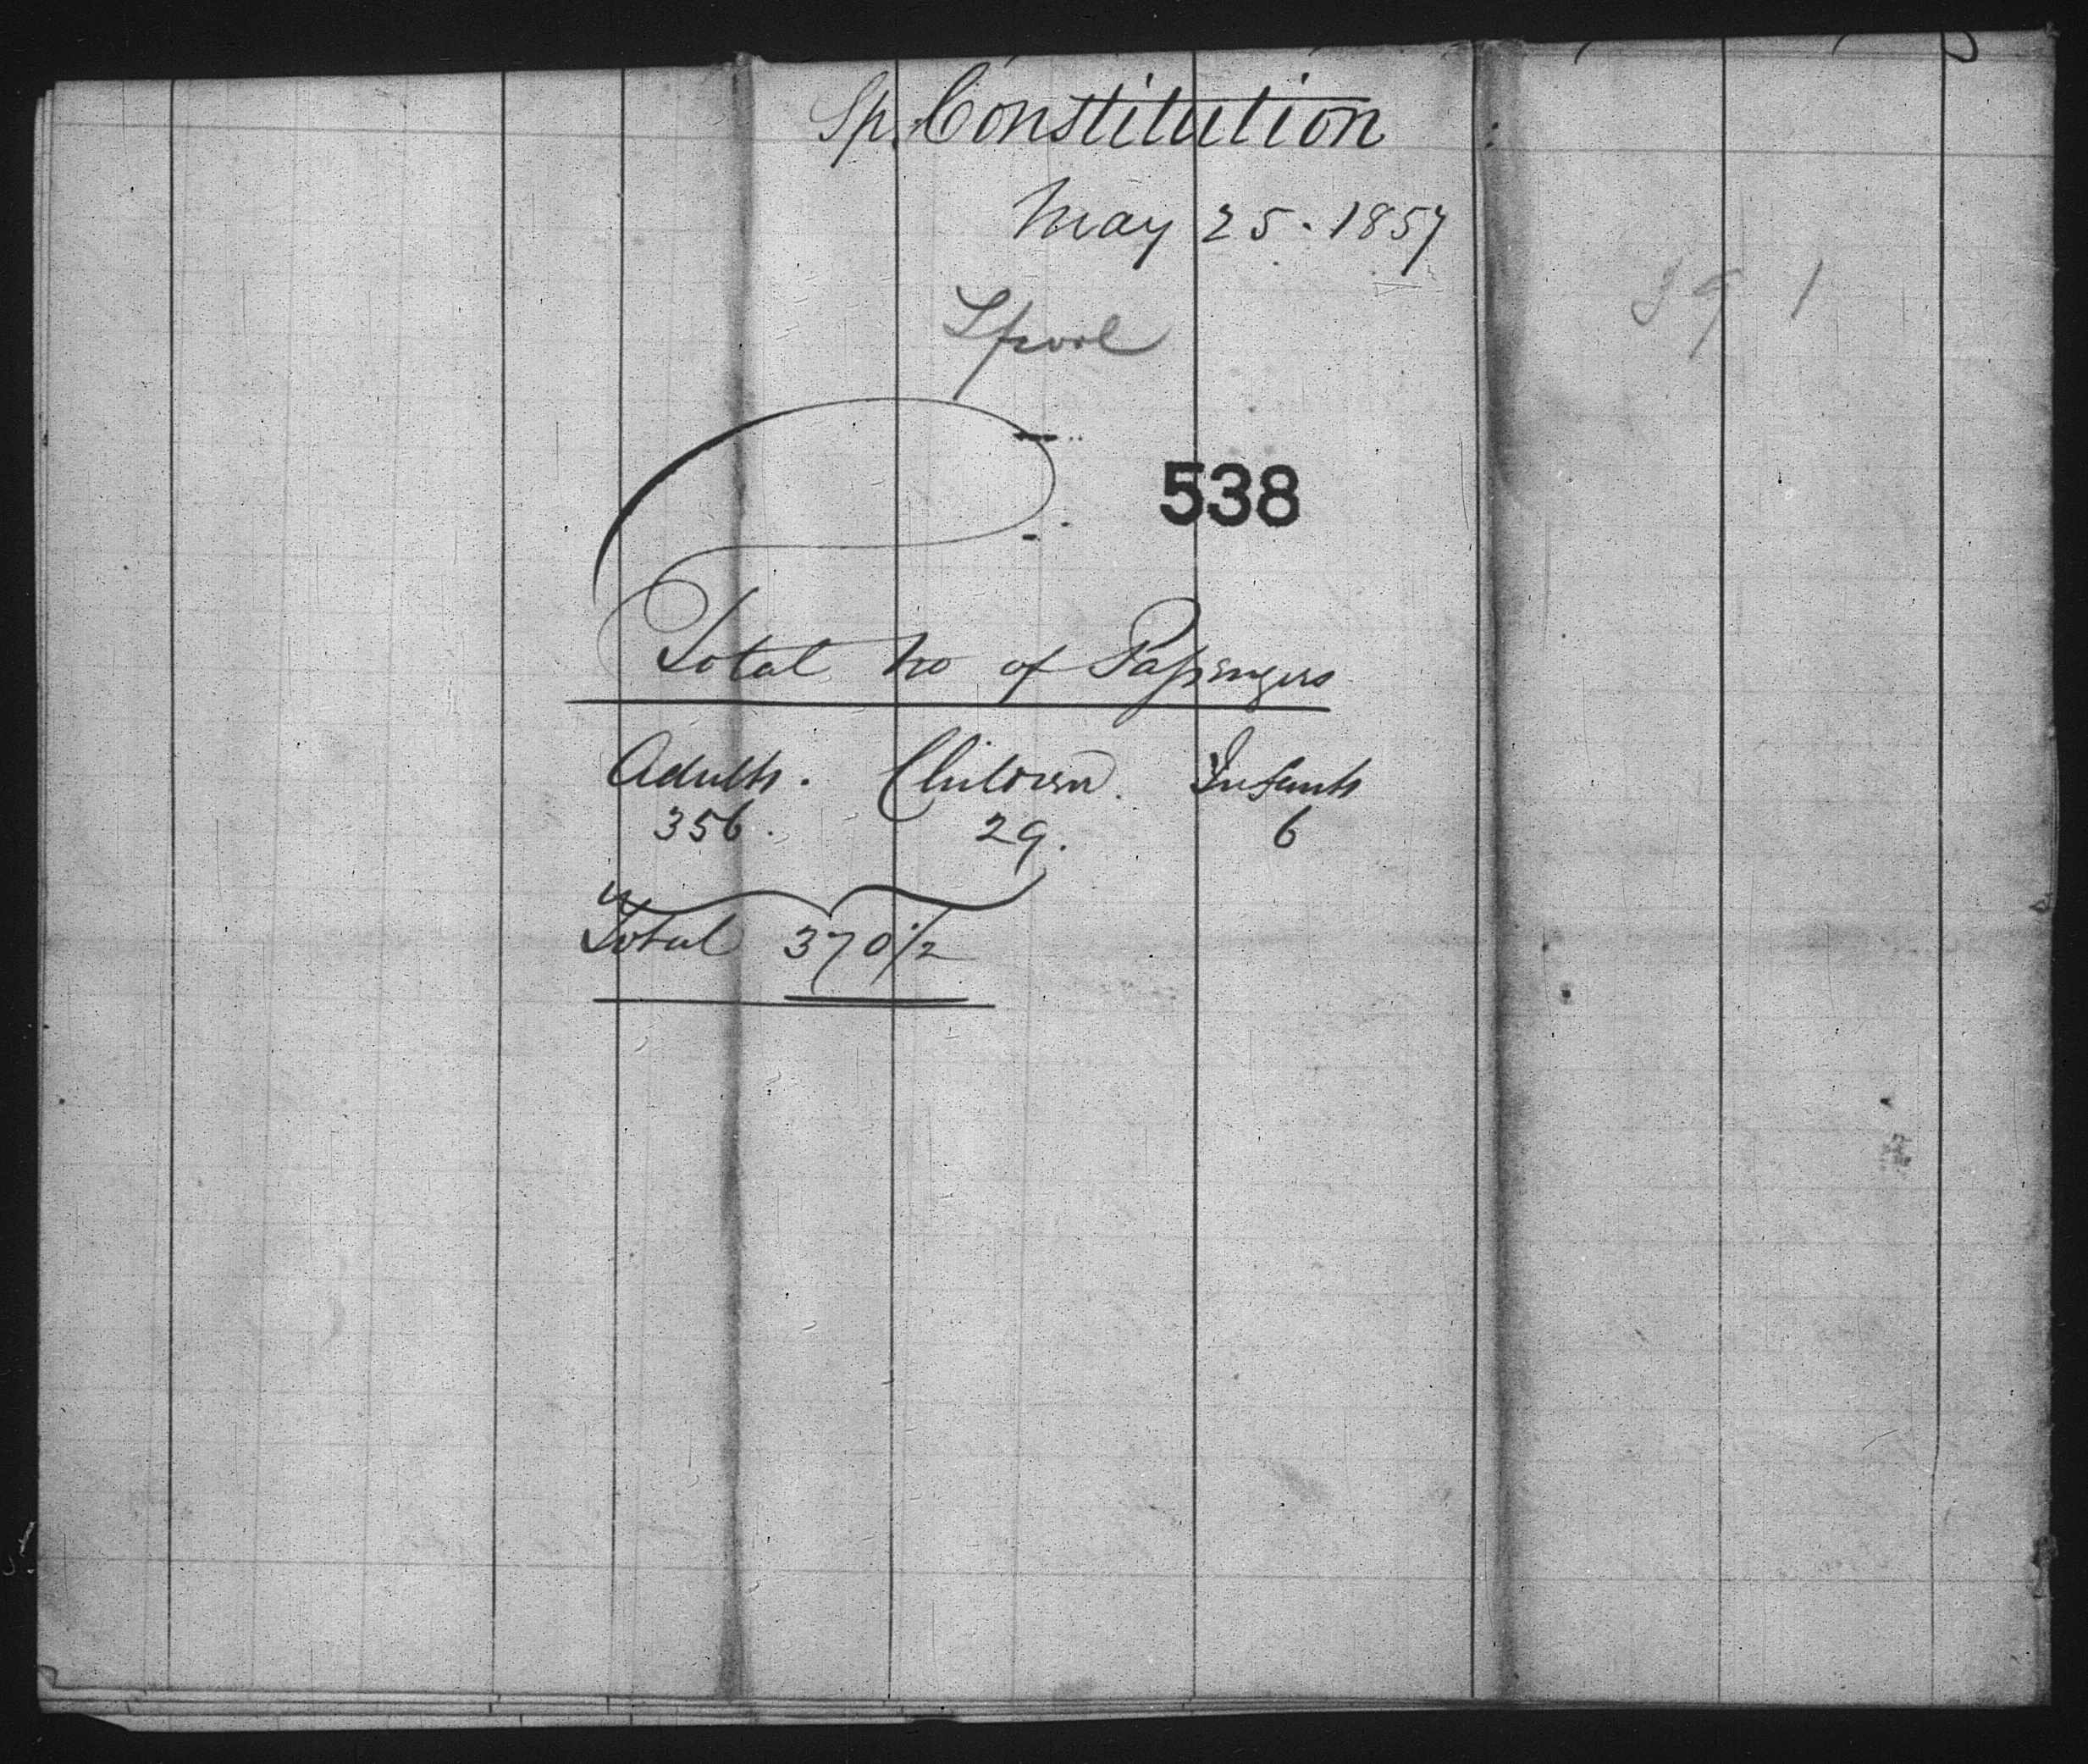 Sp. Constitution
May 25. 1857
Lpool
391
538
Total No of Passengers
Adults. Children. Infants
356. 29. 6
Total 370 1/2